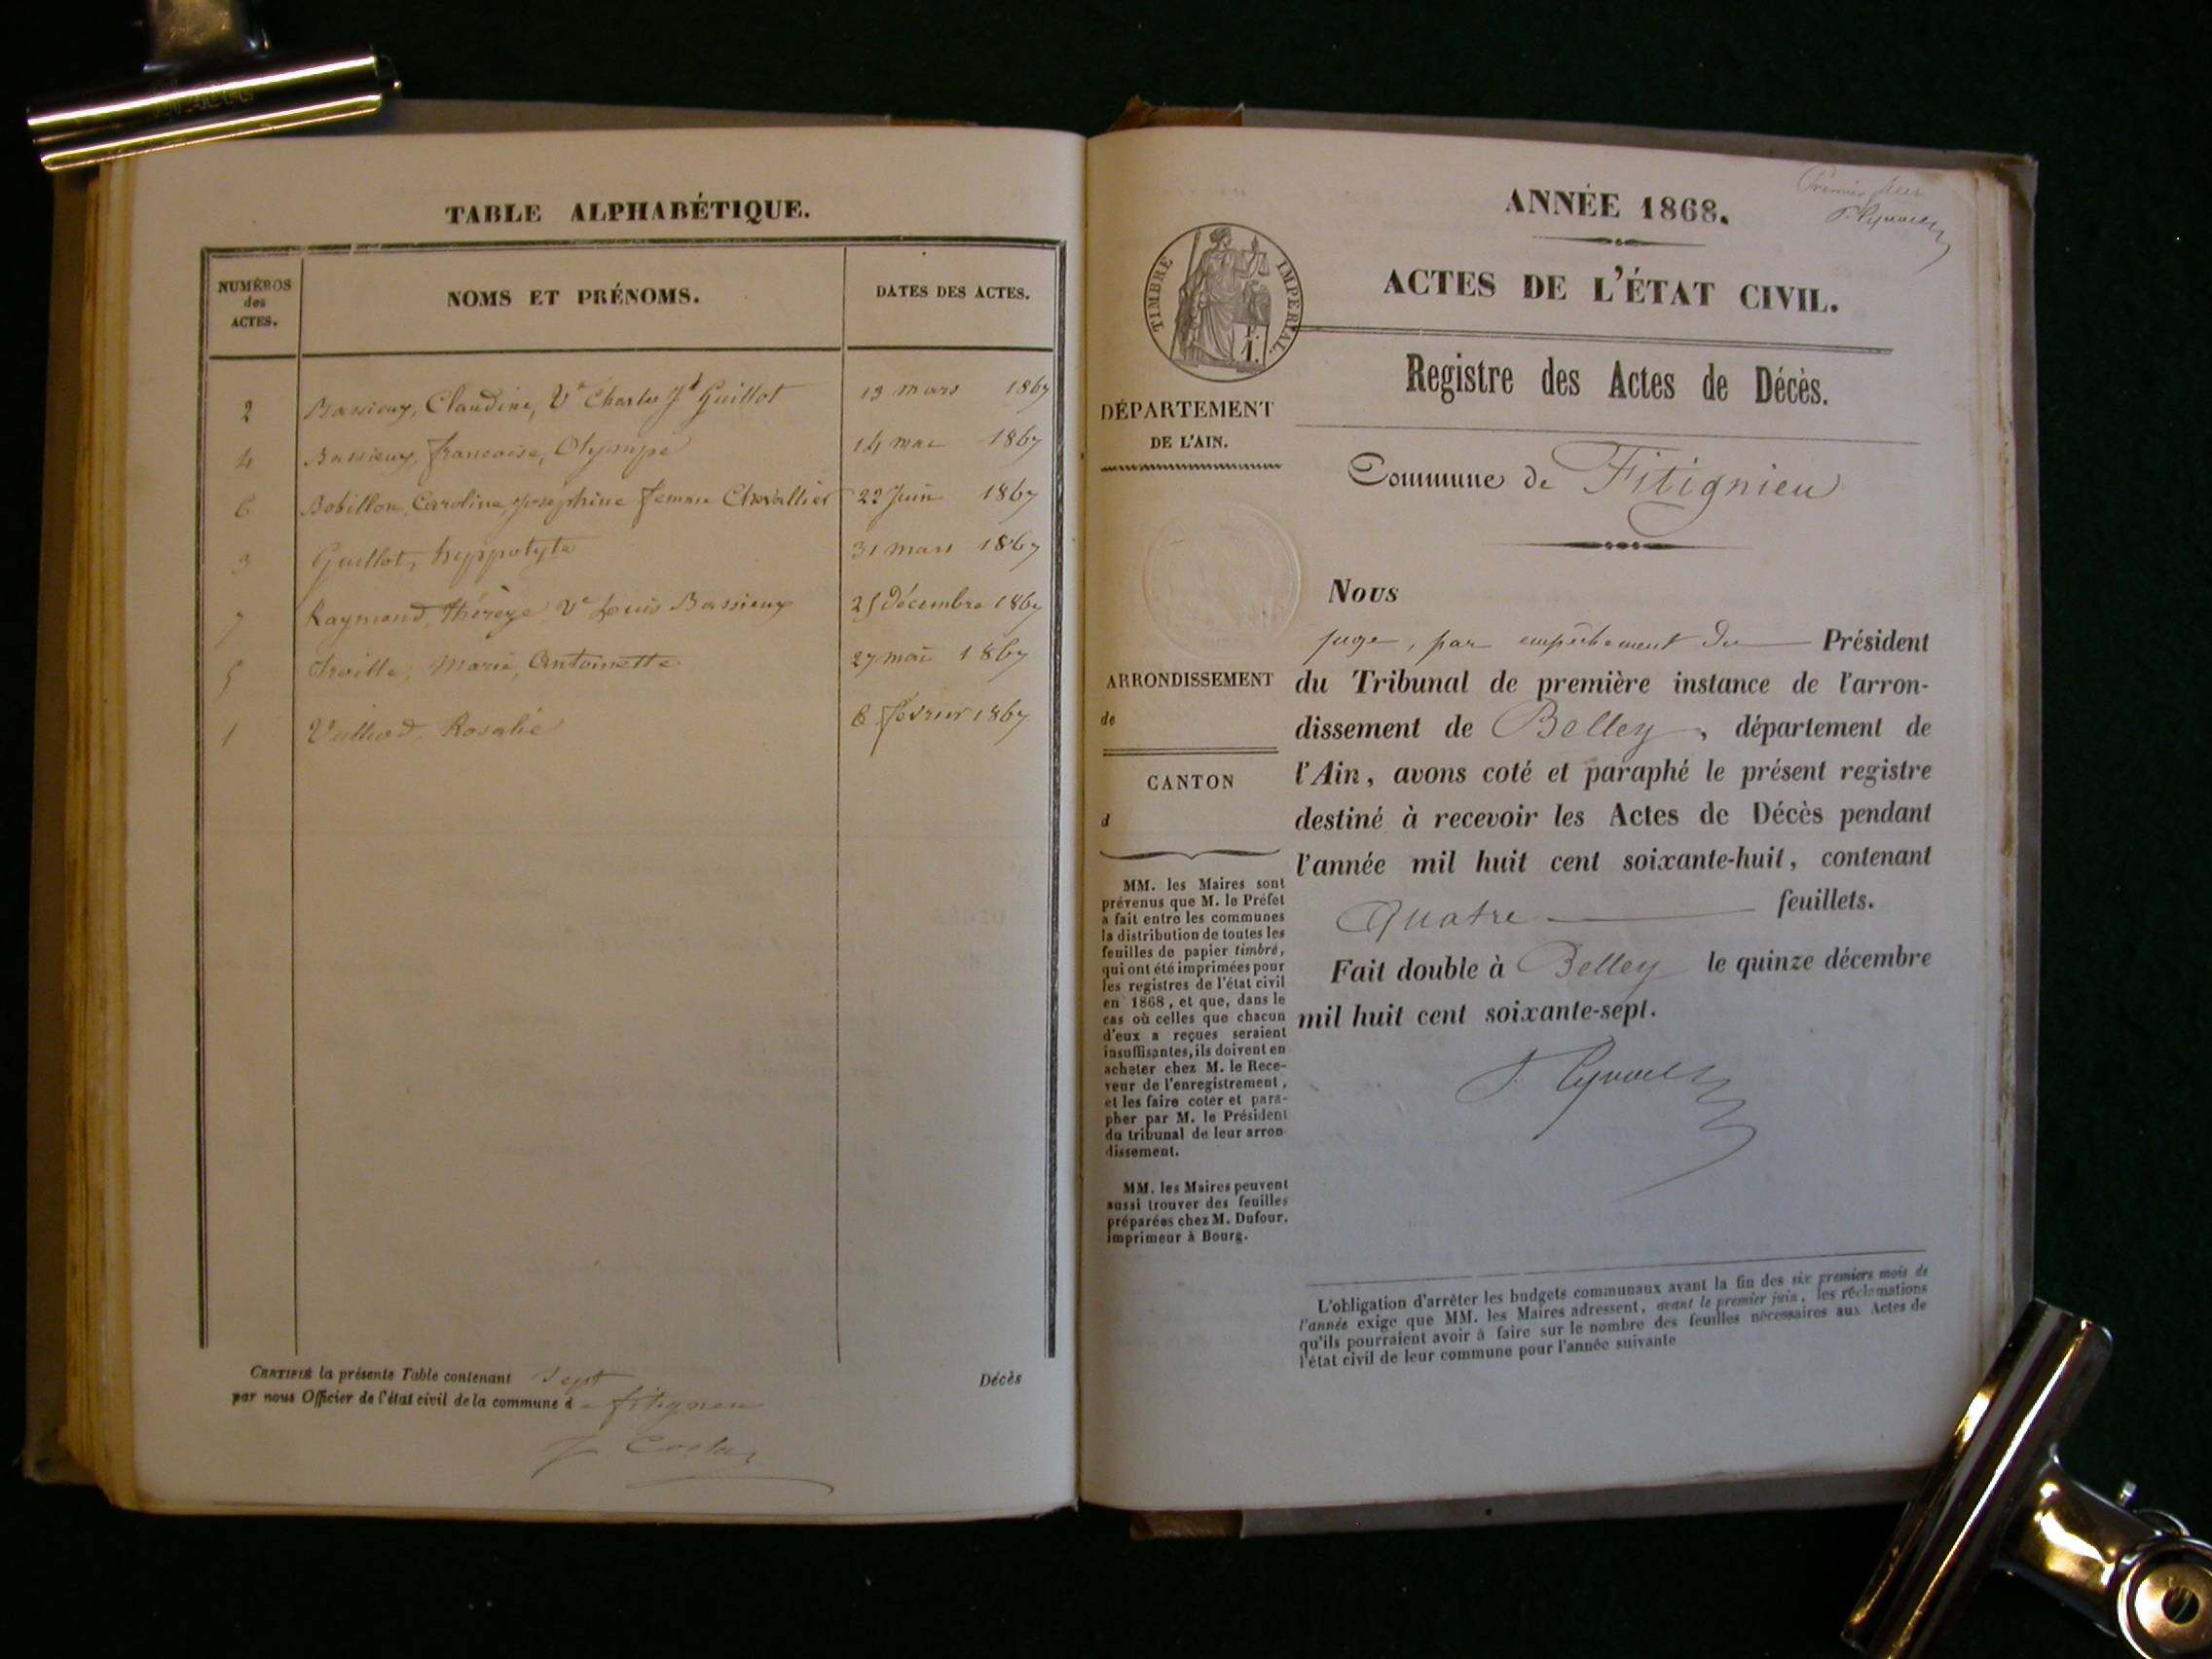 TABLE ALPHABÉTIQUE.
NUMÉROS
des
ACTES.
NOMS ET PRÉNOMS.
DATES DES ACTES.
2 Bassieux, Claudine, Ve Charles Jh Guillot 19 mars 1867
4 Bassieux, francoise, Olympe 14 mai 1867
6 Bobillon, Caroline Josephine femme Chevallier 22 Juin 1867
3 Guillot, hyppolyte 31 mars 1867
7 Raymond, Thérèze Ve Louis Bassieux 25 décembre 1867
5 Marie, Antoinette 27 mai 1867
1 Rosalie 6 février 1867
CERTIFIÉ la présente Table contenant sept Décès
par nous Officier de l'état civil de la commune de fitigneu
Premier
ANNÉE 1868.
TIMBRE IMPERIAL.
ACTES DE L'ÉTAT CIVIL.
Registre des Actes de Décès.
DÉPARTEMENT
DE L'AIN.
Commune de Fitignieu
Nous
juge, par empêchement du Président
ARRONDISSEMENT
de
du Tribunal de première instance de l'arron-
dissement de Belley, département de
l'Ain, avons coté et paraphé le présent registre
destiné à recevoir les Actes de Décès pendant
l'année mil huit cent soixante-huit, contenant
Quatre feuillets.
Fait double à Belley le quinze décembre
mil huit cent soixante-sept.
CANTON
d
MM. les Maires sont
prévenus que M. le Préfet
a fait entre les communes
la distribution de toutes les
feuilles de papier timbré,
qui ont été imprimées pour
les registres de l'état civil
en 1868, et que, dans le
cas où celles que chacun
d'eux a reçues seraient
insuffisantes, ils doivent en
acheter chez M. le Rece-
veur de l'enregistrement,
et les faire coter et para-
pher par M. le Président
du tribunal de leur arron-
dissement.
MM. les Maires peuvent
aussi trouver des feuilles
préparées chez M. Dufour,
imprimeur à Bourg.
L'obligation d'arrêter les budgets communaux avant la fin des six premiers mois de
l'année exige que MM. les Maires adressent, avant le premier juin, les réclamations
qu'ils pourraient avoir à faire sur le nombre des feuilles nécessaires aux Actes de
l'état civil de leur commune pour l'année suivante